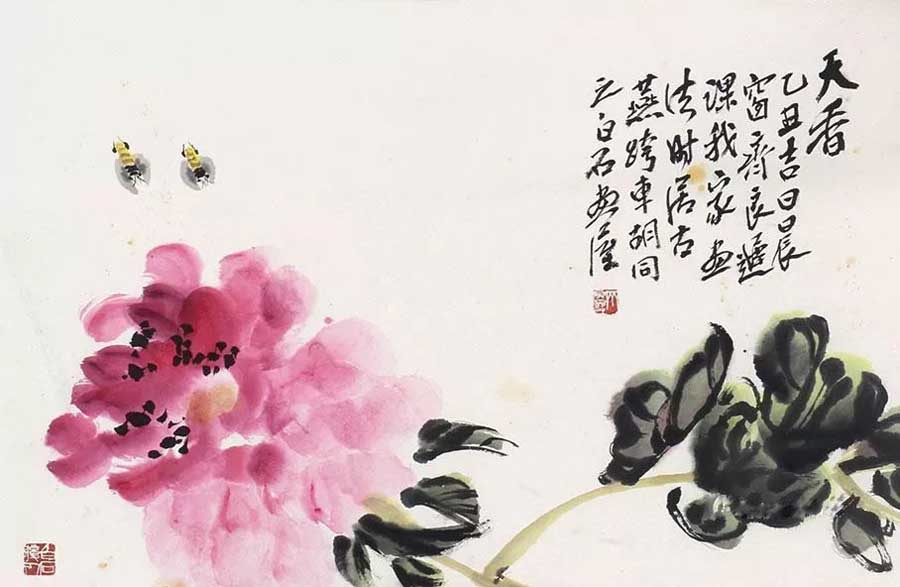 天香
乙丑吉日晨
窗齊良遲
課我家画
法时居古
燕跨車胡同
之白石画屋